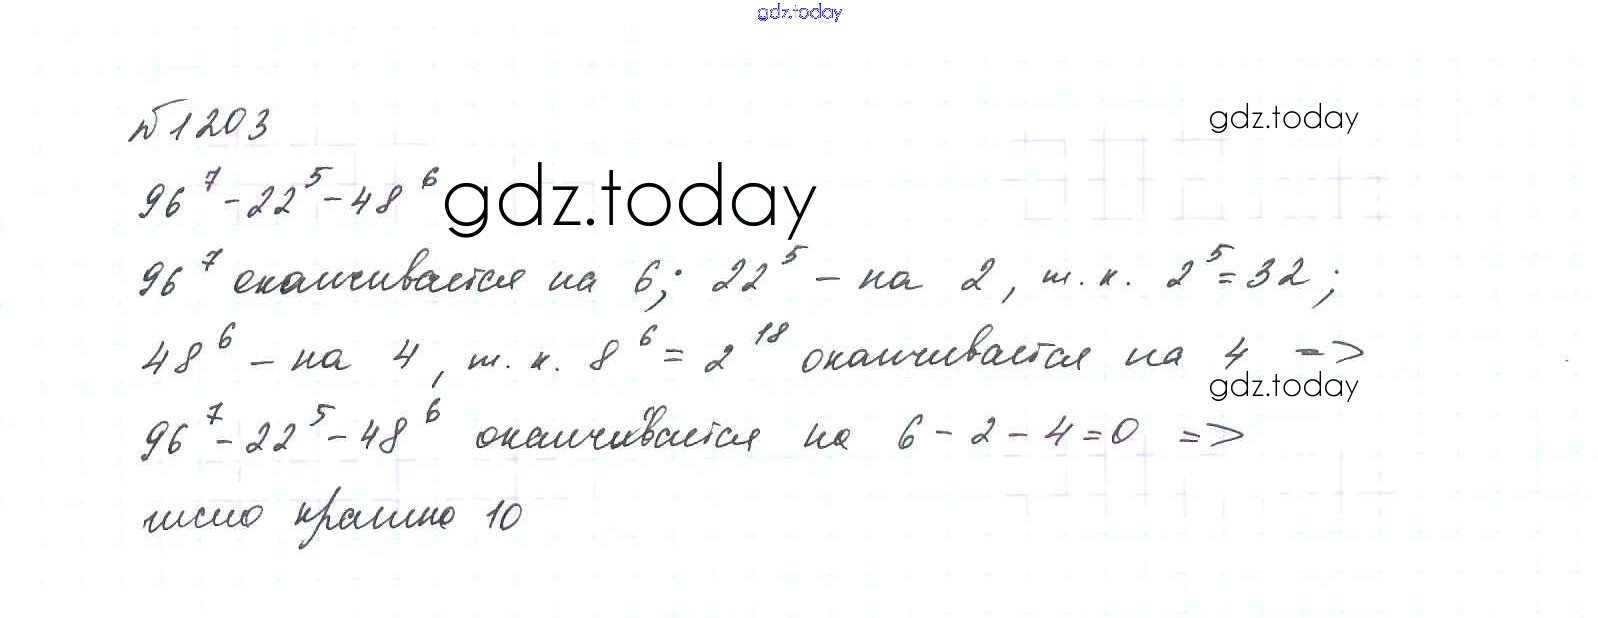 gdz.today
№1203
gdz.today
96⁷-22⁵-48⁶ gdz.today
96⁷ оканчивается на 6; 22⁵ – на 2, т. к. 2⁵=32;
48⁶ – на 4, т. к. 8⁶ = 2¹⁸ оканчивается на 4 =>
gdz.today
96⁷-22⁵-48⁶ оканчивается на 6-2-4=0 =>
число кратно 10